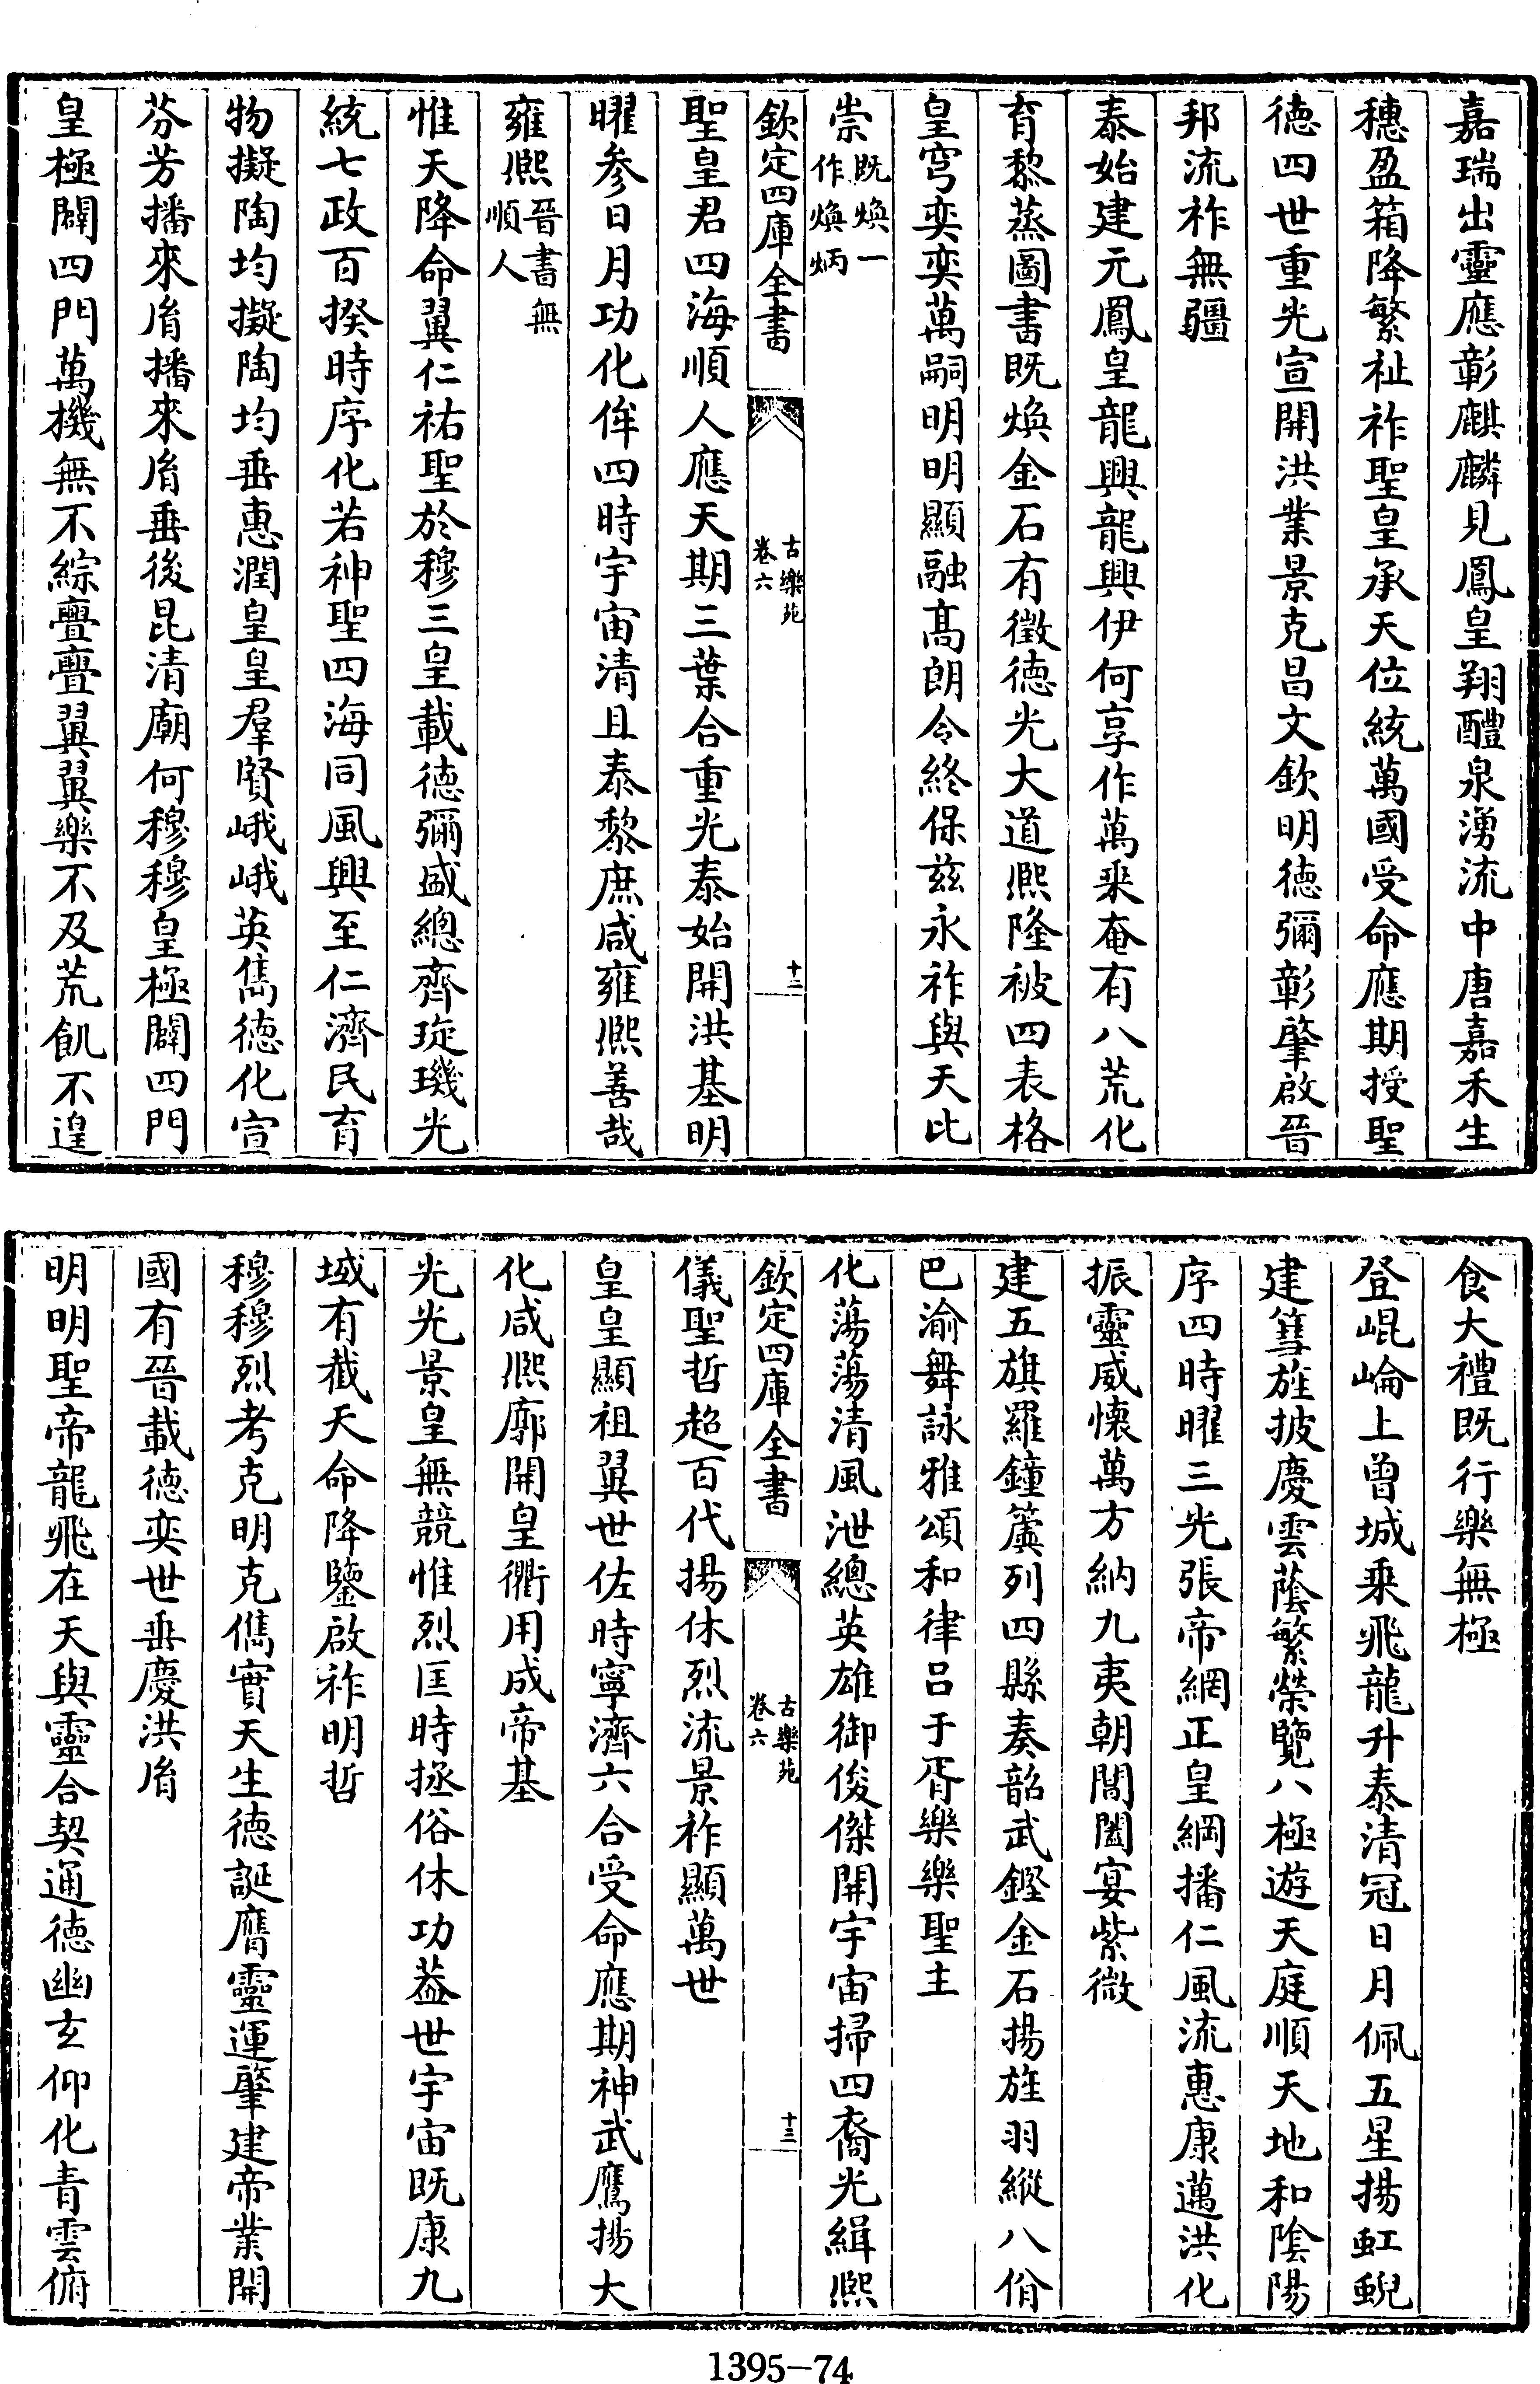 嘉瑞出靈應彰麒麟見鳳皇翔醴泉湧流中唐嘉禾生
穗盈箱降繁祉祚聖皇承天位統萬國受命應期授聖
徳四世重光宣開洪業景克昌文欽明徳彌彰肇啟晉
邦流祚無疆
泰始建元鳳皇龍興龍興伊何享作萬乗奄有八荒化
育黎蒸圖書既煥金石有徵徳光大道熙隆被四表格
皇穹奕奕萬嗣明明顯融髙朗令終保兹永祚與天比
崇既煥一作煥炳
欽定四庫全書
古樂苑
卷六
十二
聖皇君四海順人應天期三葉合重光泰始開洪基明
曜参日月功化侔四時宇宙清且泰黎庶咸雍熙善哉
雍熙晉書無順人
惟天降命翼仁祐聖於穆三皇載徳彌盛總齊琁璣光
統七政百揆時序化若神聖四海同風興至仁濟民育
物擬陶均擬陶均垂惠潤皇皇羣賢峨峨英雋徳化宣
芬芳播來胤播來胤垂後昆清廟何穆穆皇極闢四門
皇極闢四門萬機無不綜亹亹翼翼樂不及荒飢不遑
食大禮既行樂無極
登崐崘上曽城乗飛龍升泰清冠日月佩五星揚虹蜺
建篲旌披慶雲蔭繁榮覽八極遊天庭順天地和陰陽
序四時曜三光張帝網正皇綱播仁風流惠康邁洪化
振靈威懐萬方納九夷朝閶闔宴紫微
建五旗羅鐘簴列四縣奏韶武鏗金石揚旌羽縱八佾
巴渝舞詠雅頌和律吕于胥樂樂聖主
化蕩蕩清風泄總英雄御俊傑開宇宙掃四裔光緝熙
欽定四庫全書
古樂苑
卷六
十三
儀聖哲超百代揚休烈流景祚顯萬世
皇皇顯祖翼世佐時寧濟六合受命應期神武鷹揚大
化咸熙廓開皇衢用成帝基
光光景皇無競惟烈匡時拯俗休功葢世宇宙既康九
域有截天命降鑒啟祚明哲
穆穆烈考克明克儁實天生徳誕膺靈運肇建帝業開
國有晉載徳奕世垂慶洪胤
明明聖帝龍飛在天與靈合契通徳幽玄仰化青雲俯
1395-74